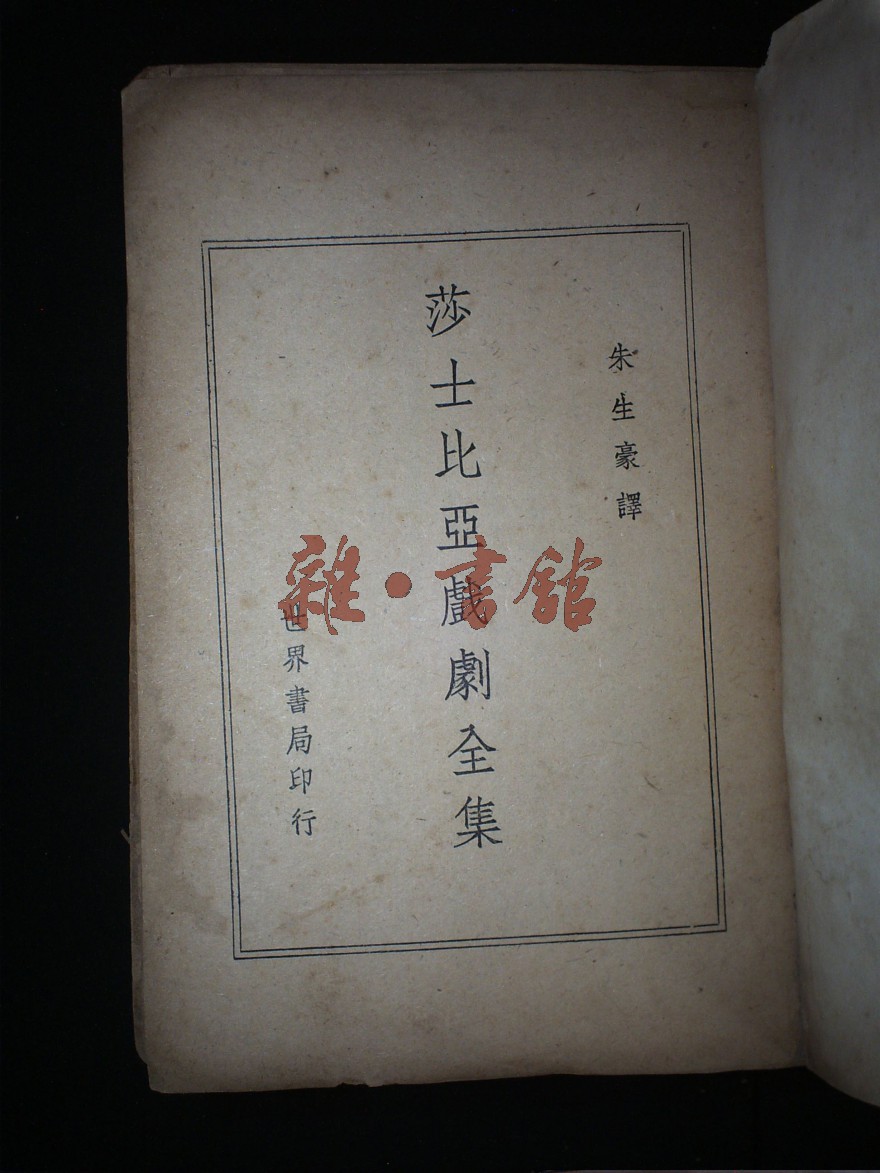 朱生豪譯
莎士比亞戲劇全集
世界書局印行
雜·書舘